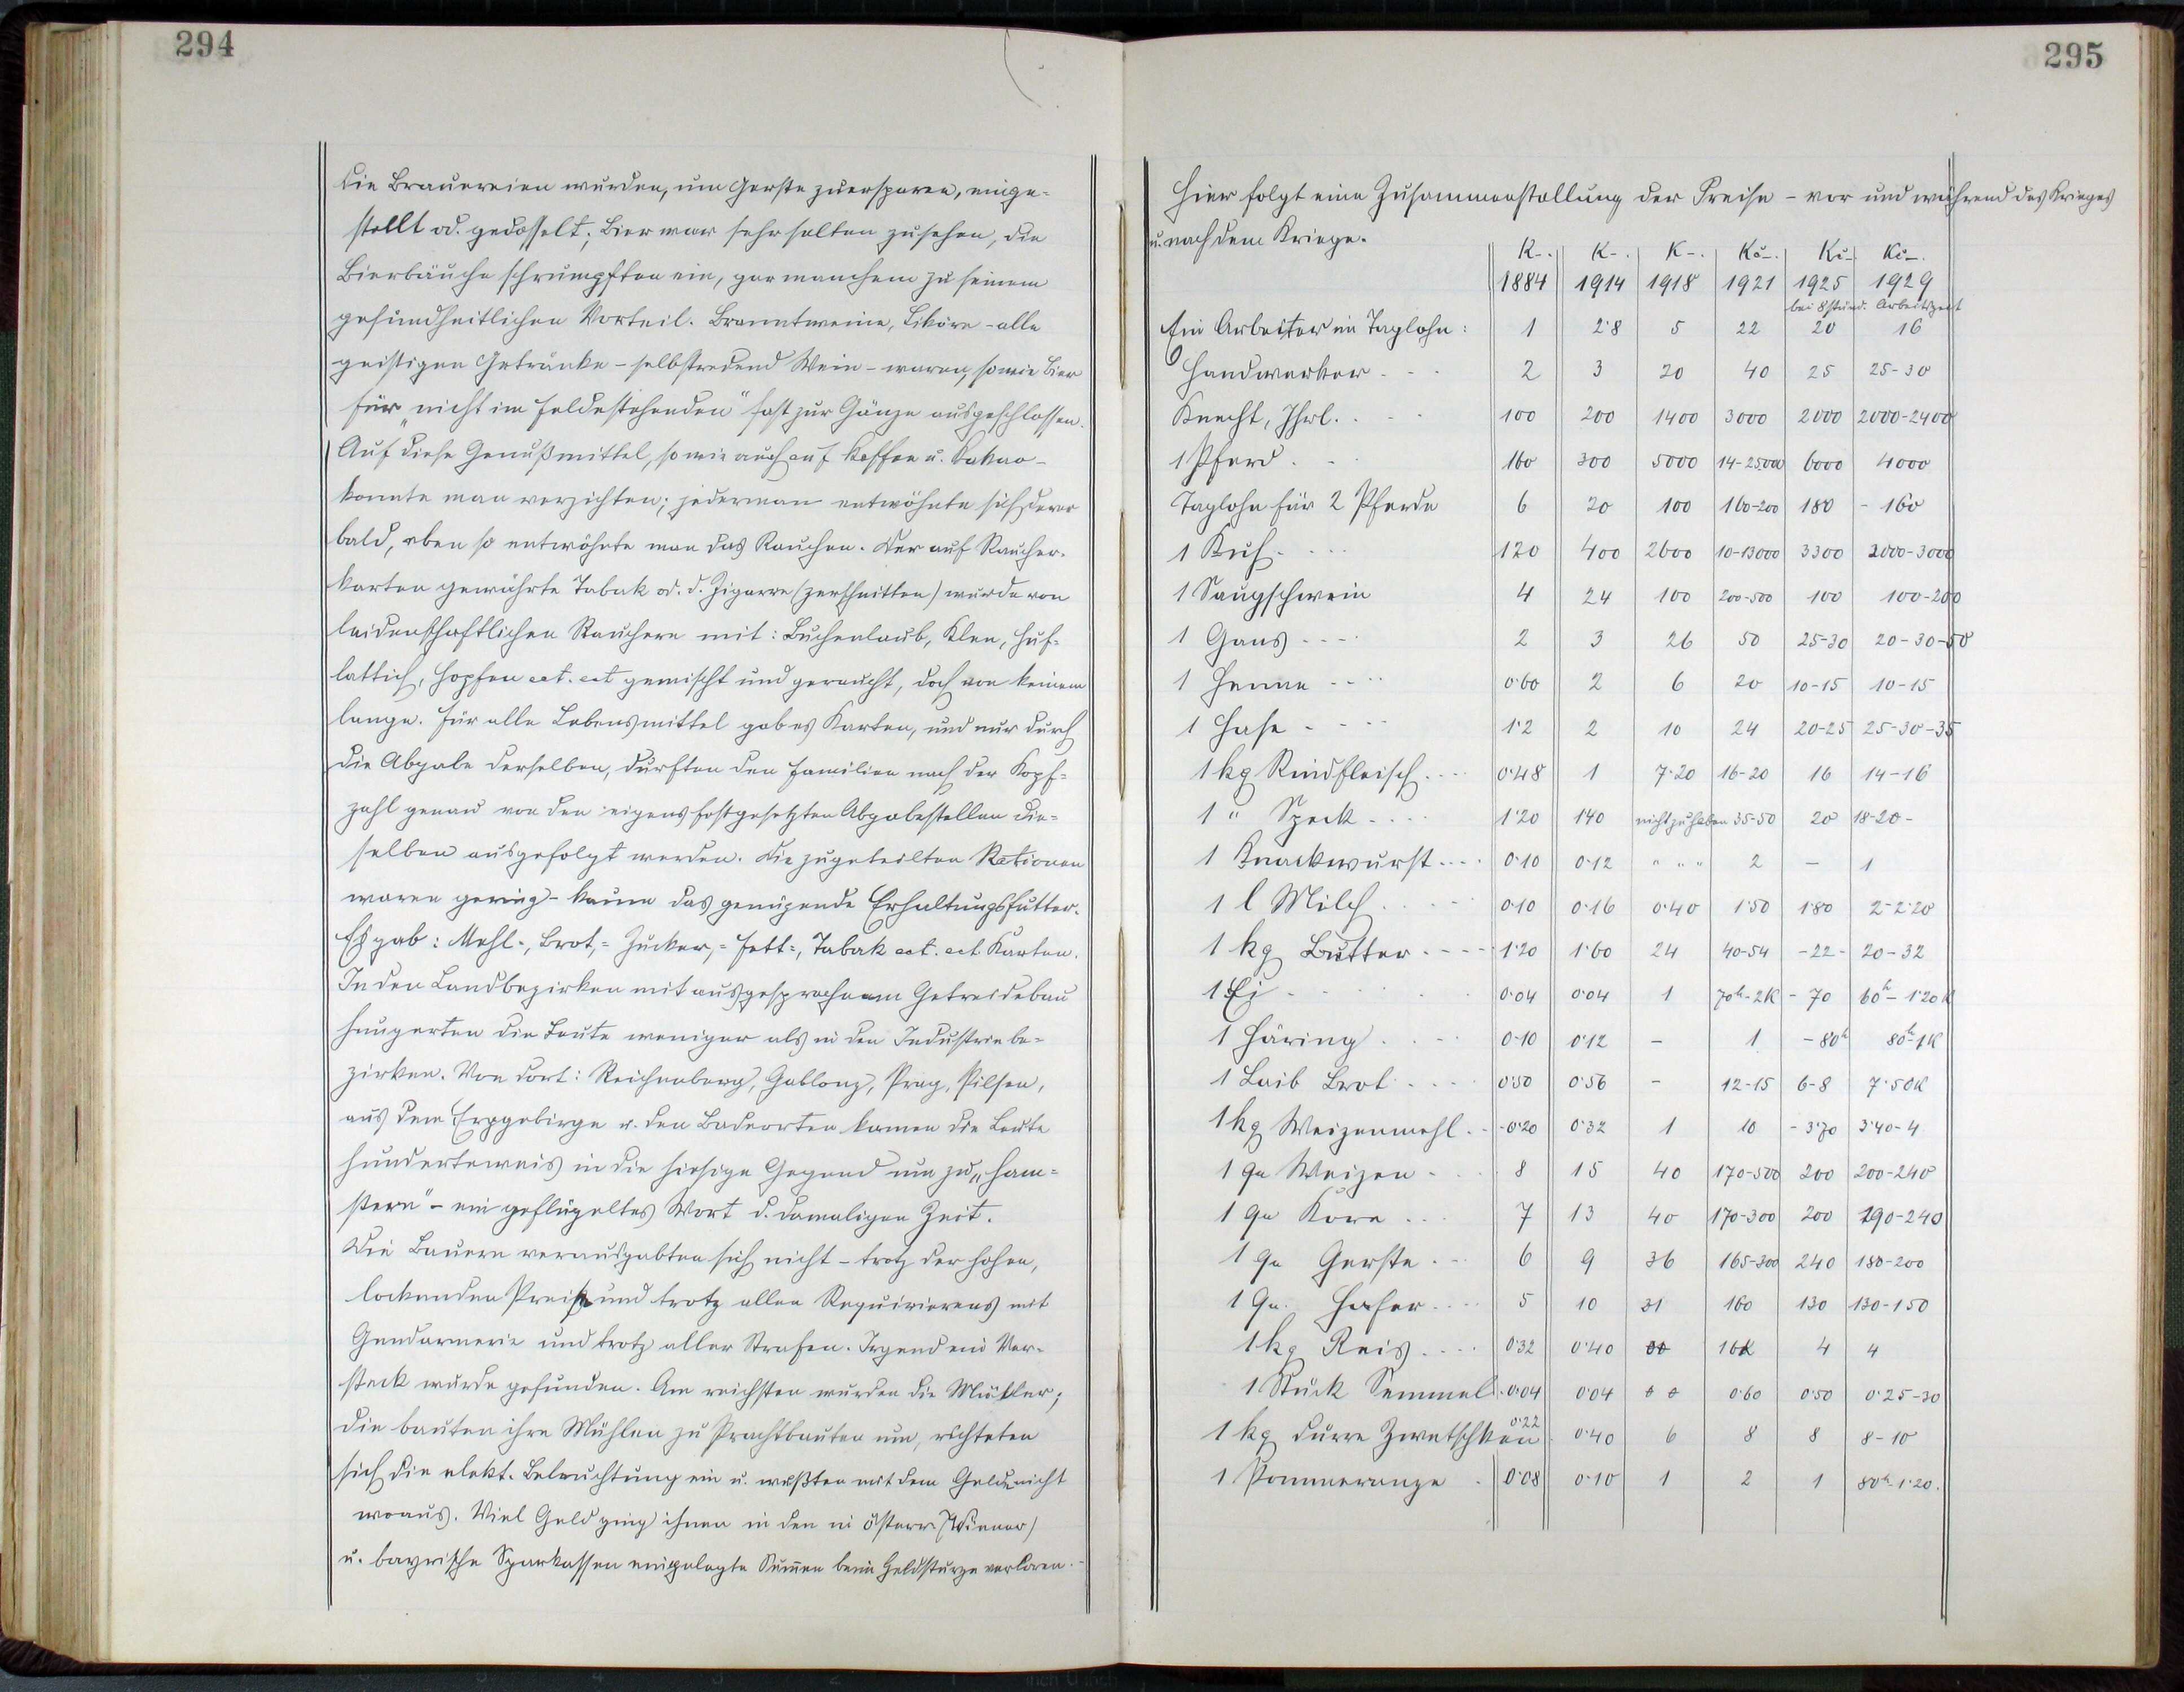 294
die Brauereien wurden, um Gerste zu ersparen, einge-
stellt od. gedrosselt; Bier war sehr selten zu sehen, die
Bierbäuche schrumpften ein, gar manchem zu seinem
gesundheitlichen Vorteil. Branntweine, Liköre - alle
geistigen Getränke - selbstredend Wein - waren, sowie Bier
für „nicht im Feldestehenden" fast zur Gänze ausgeschlossen.
Auf diese Genußmittel, so wie auch auf Kaffee u. Kakao -
konnte man verzichten; jederman entwöhnte sich derer
bald, eben so entwöhnte man das Rauchen. Der auf Raucher-
karten gewährte Tabak od. d. Zigarre (zerschnitten) wurde von
leidenschaftlichen Rauchern mit: Buchenlaub, Klee, Huf-
lattich, Hopfen ect. ect gemischt und geraucht, doch von keinem
lange. Für alle Lebensmittel gab es Karten, und nur durch
die Abgabe derselben, durften den Familien nach der Kopf-
zahl genau von den eigens festgesetzten Abgabestellen die-
selben ausgefolgt werden. Die zugeteilten Rationen
waren gering - kaum das genügende Erhaltungsfutter.
Es gab: Mehl-, Brot,= Zucker,= Fett=, Tabak ect. ect. Karten.
In den Landbezirken mit ausgesprochenem Getreidebau
hungerten die Leute weniger als in den Industriebe-
zirken. Von dort: Reichenberg, Gablonz, Prag, Pilsen,
aus dem Erzgebirge u. den Badeorten kamen die Leute
hunderteweis in die hiesige Gegend um zu „ham-
stern" - ein geflügeltes Wort d. damaligen Zeit.
Die Bauern verausgabten sich nicht - trotz der hohen,
lockenden Preise und trotz allen Requirierens mit
Gendarmerie und trotz aller Strafen. Irgend ein Ver-
steck wurde gefunden. Am reichsten wurden die Müller;
die bauten ihre Mühlen zu Prachtbauten um, richteten
sich die elekt. Beleuchtung ein u. wußten mit dem Gelde nicht
woaus. Viel Geld ging ihnen in den in österr. (Wiener)
u. bayrische Sparkassen eingelegte Summen beim Geldsturze verloren. -
295
Hier folgt eine Zusammenstellung der Preise - vor und während des Krieges
u. nach dem Kriege.
K-. K-. K-. Kč-. Kč- Kč-.
1884 1914 1918 1921 1925 1929
bei 8 stünd. Arbeitszeit
Ein Arbeiter im Taglohn: 1 2·8 5 22 20 16
Handwerker - - - 2 3 20 40 25 25-30
Knecht, Jhrl. - - - 100 200 1400 3000 2000 2000-2400
1 Pferd. - - 160 300 5000 14-25000 6000 4000
Taglohn für 2 Pferde 6 20 100 160-200 180 - 160
1 Kuh - - - 120 400 2600 10-13000 3300 2000-3000
1 Saugschwein 4 24 100 200-500 100 100-200
1 Gans - - - 2 3 26 50 25-30 20-30-50
1 Henne - - - 0·60 2 6 20 10-15 10-15
1 Hase - - - - 1·2 2 10 24 20-25 25-30-35
1 kg Rindfleisch - - - 0·48 1 7·20 16-20 16 14-16
1 " Speck - - - 1·20 1·40 nicht zu haben 35-50 20 18-20-
1 Knackwurst - - - 0·10 0·12 " " " 2 - 1
1 l Milch - - - - 0·10 0·16 0·40 1·50 1·80 2-2·20
1 kg Butter - - - - 1·20 1·60 24 40-54 -22- 20-32
1 Ei - - - - - 0·04 0·04 1 70h-2K - 70 60h-1·20K
1 Häring - - - 0·10 0·12 - 1 - 80h 80h-1K
1 Laib Brot - - - 0·50 0·56 - 12-15 6-8 7·50K
1 kg Weizenmehl - - 0·20 0·32 1 10 - 3·70 3·40-4
1 qu Weizen - - - 8 15 40 170-500 200 200-240
1 qu Korn - - - 7 13 40 170-300 200 190-240
1 qu Gerste - - - 6 9 36 165-300 240 180-200
1 qu. Hafer - - - 5 10 31 160 130 130-150
1 kg Reis - - - - 0·32 0·40 16K 4 4
1 Stück Semmel - 0·04 0·04 0·60 0·50 0·25-30
1 kg dürre Zwetschken 0·22 0·40 6 8 8 8-10
1 Pommeranze - 0·08 0·10 1 2 1 80h-1·20.